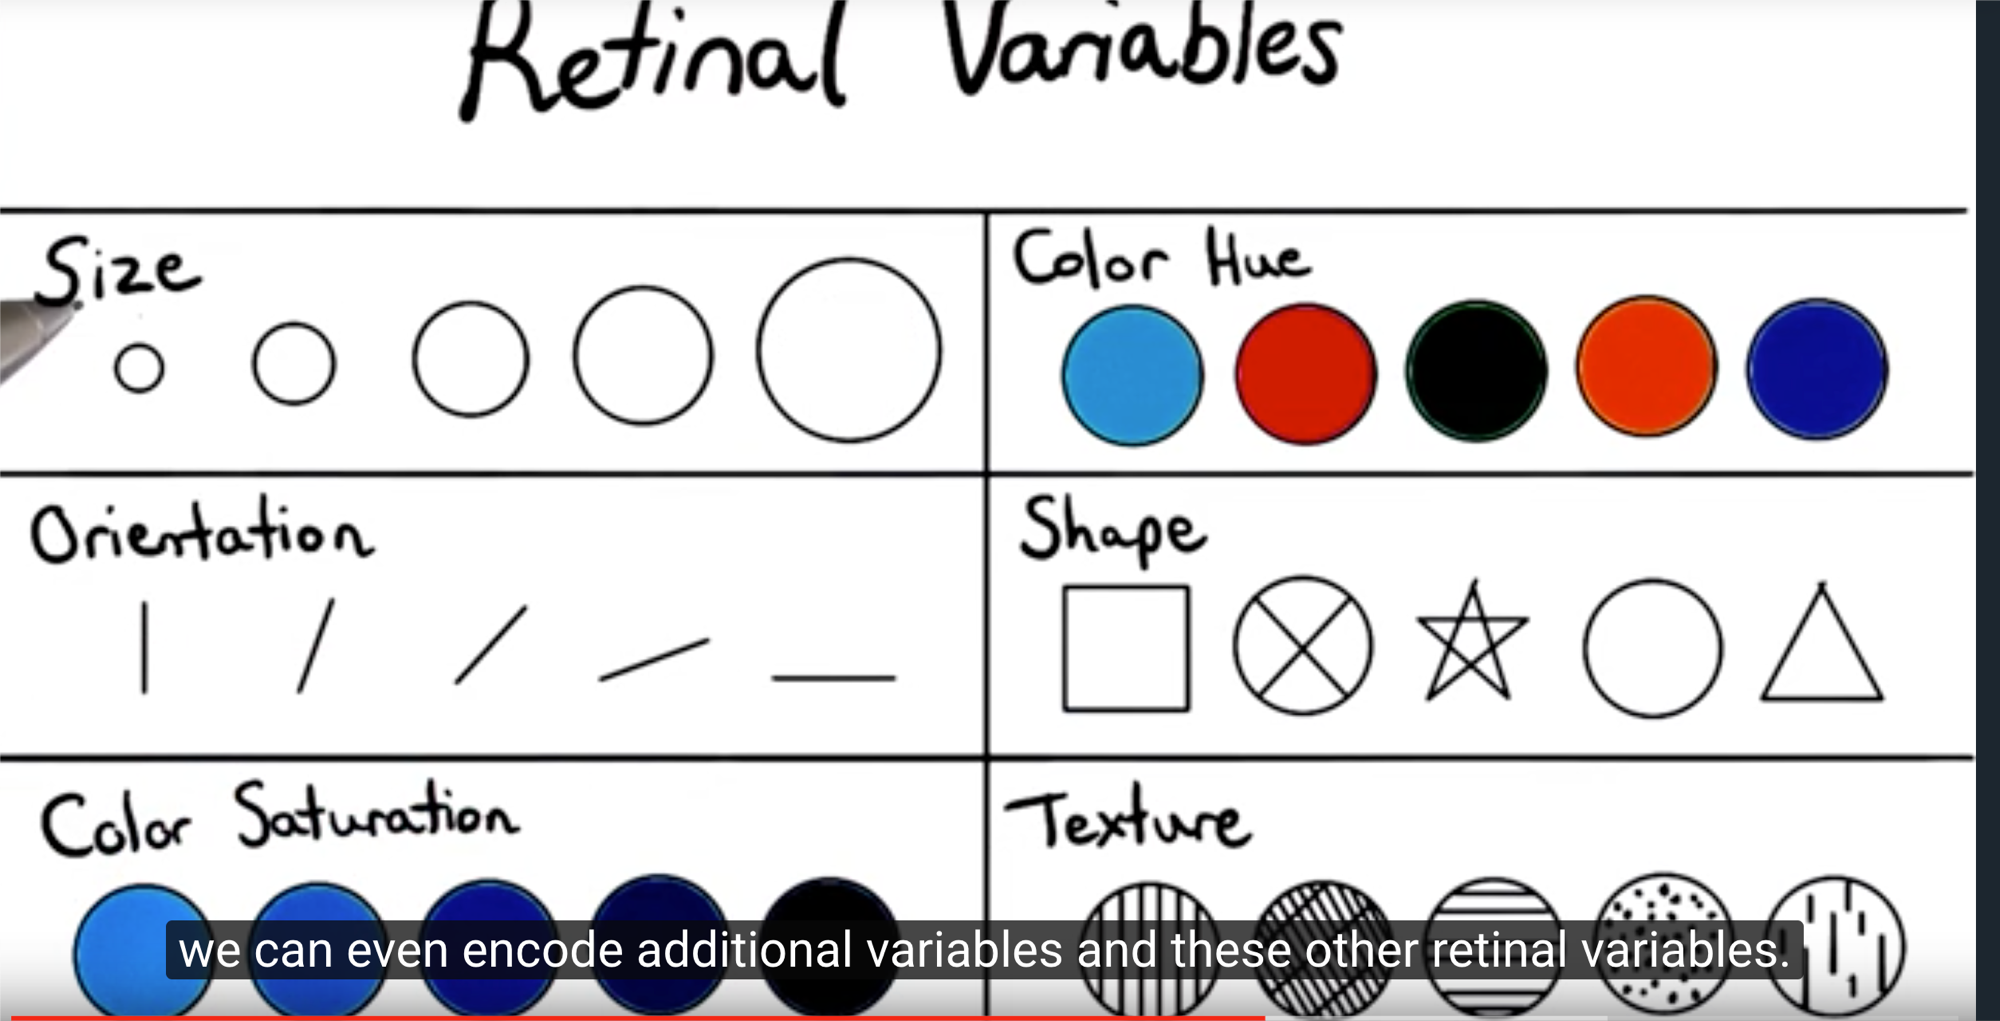 Retinal Variables
Size
Color Hue
Orientation
Shape
Color Saturation
Texture
we can even encode additional variables and these other retinal variables.